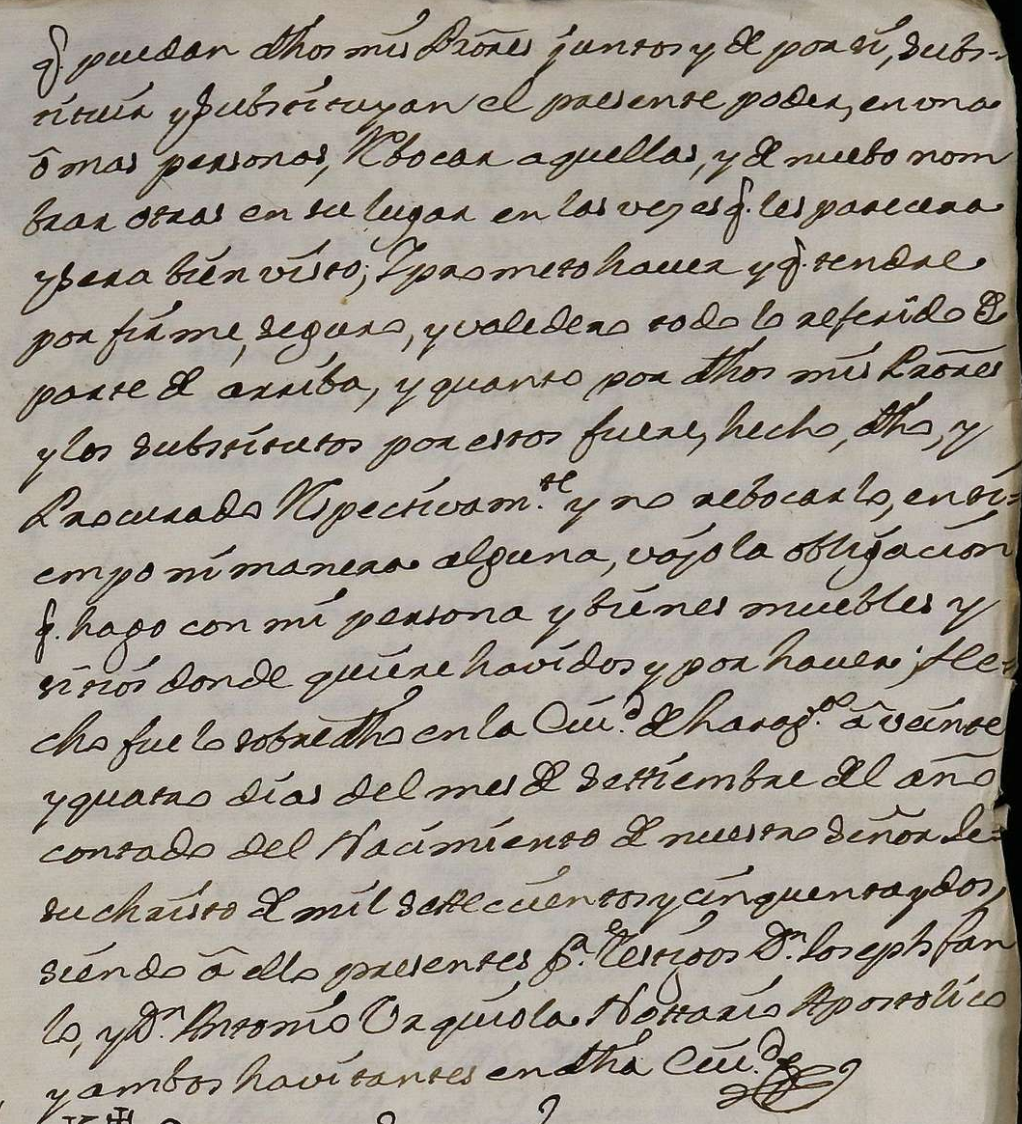 q. puedan dhos mis Prōres juntos y de por si, subs-
tituir y substituyan el presente poder, en una
ō mas personas, Rbocar aquellas, y de nuebo nom
brar otras en su lugar en las vezes q. les parecera
y sera bien visto; Y prometo haver y q. tendre
por firme, seguro, y valedero todo lo referido de
parte de arriba, y quanto por dhos mis Prōres
y los substitutos por estos fuere, hecho, dho, y
Procurado Rspectivam.te y no rebocarlo, en ti=
empo ni manera alguna, vajo la obligacion
q. hago con mi persona y bienes muebles y
sitios donde quiere havidos y por haver; fe-
cho fue lo sobredho en la Ciu.d de Zarag.za â veinte
y quatro dias del mes de settiembre del año
contado del Nacimiento de nuestro señor Je=
suchristo de mil settecientos y cinquenta y dos,
siendo â ello presentes p.r testigos D.n Joseph fan
lo, y D.n Antonio Urquiola Nottario Apostolico
y ambos havitantes en dha Ciu.d